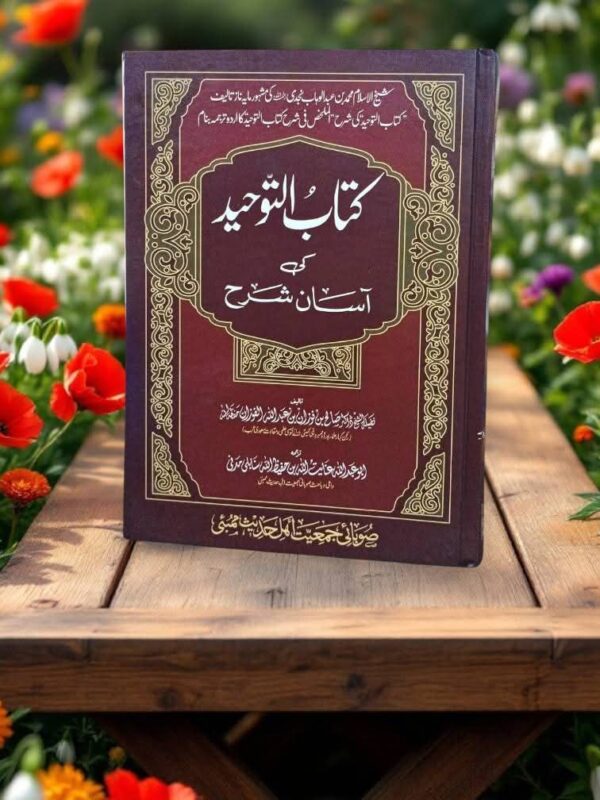 شیخ الاسلام محمد بن عبدالوہاب نجدی رحمہ اللہ کی مشہور مایہ ناز تالیف
"کتاب التوحید" کی شرح "الملخص فی شرح کتاب التوحید" کا اردو ترجمہ بنام
کتابُ التّوحید
کی
آسان شرح
تالیف
فضیلۃ الشیخ ڈاکٹر صالح بن فوزان بن عبداللہ الفوزان حفظہ اللہ
ترجمہ
ابو عبداللہ عنایت اللہ بن حفیظ اللہ سنابلی مدنی
صوبائی جمعیت اہل حدیث ممبئی